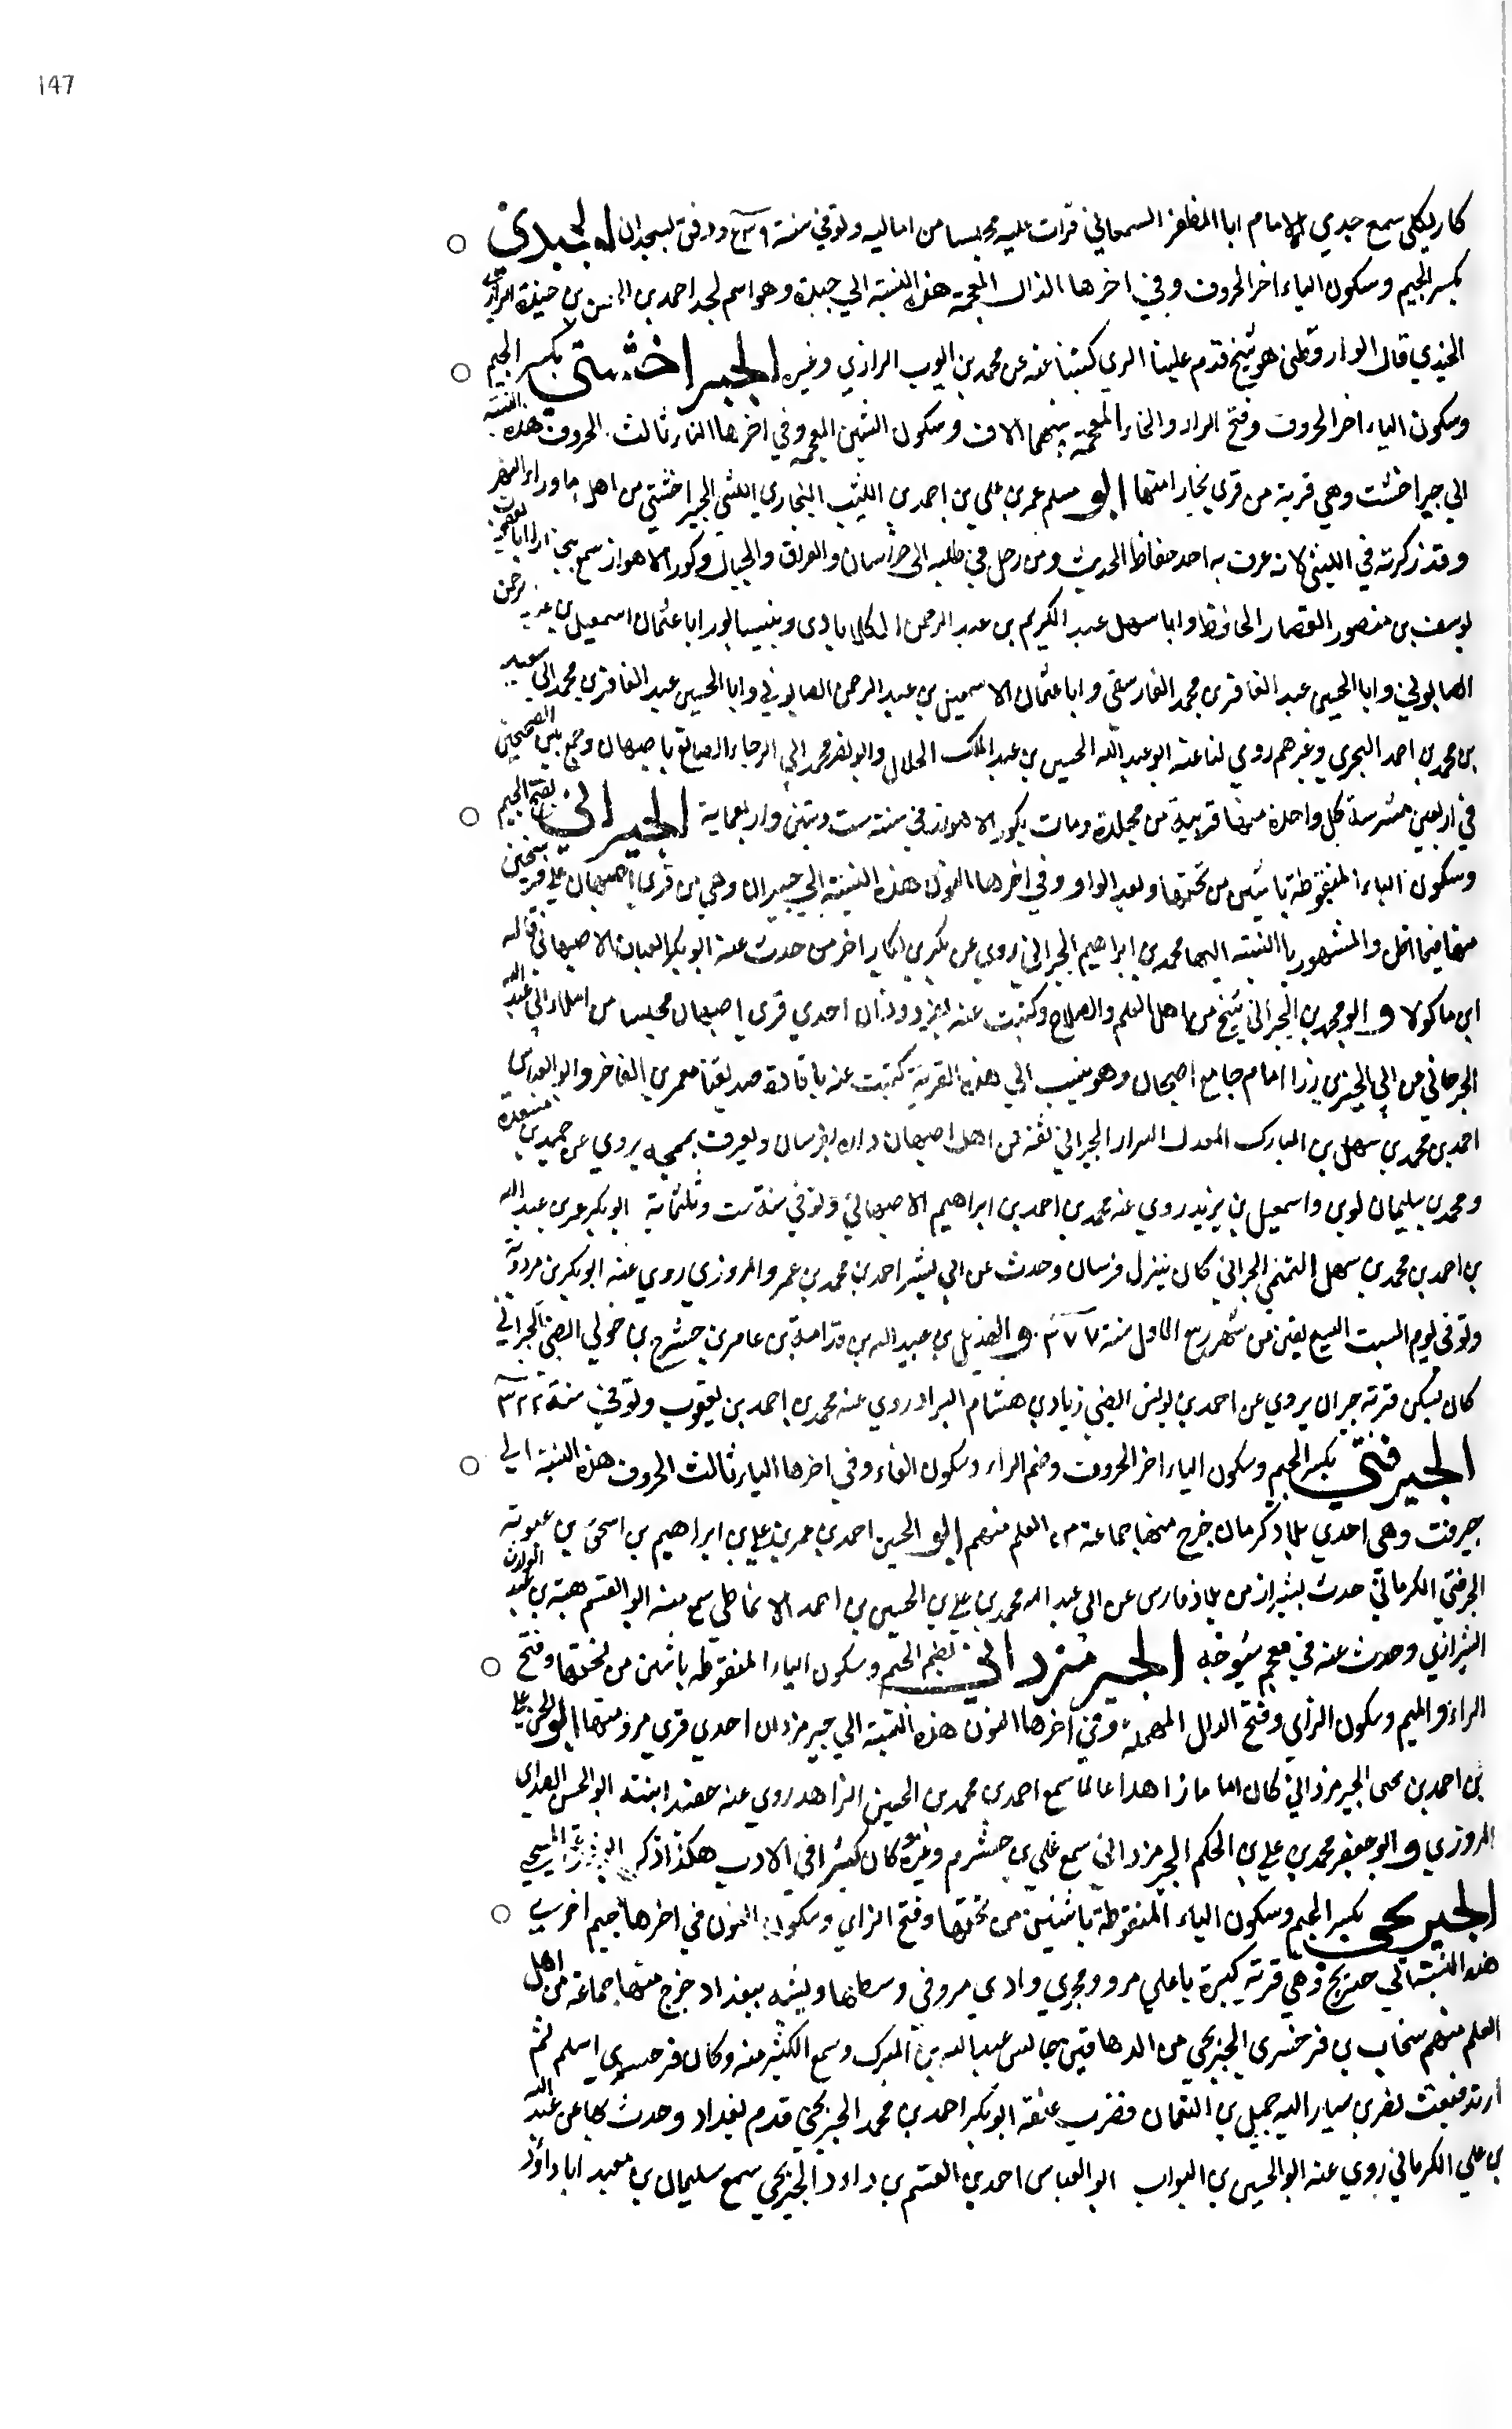 147
كان يملي سمع جدي الامام ابا المظفر السمعاني قرات عليه مجلسا من اماليه وتوفي سنة ودفن الجيذي
بكسر الجيم وسكون الياء اخر الحروف وفي اخرها الذال المعجمة هذه النسبة الي جيذة وهو اسم لجد احمد بن الحسن بن جيذة الرازي
الجيذي قال الدارقطني هو شيخ قدم علينا الري كتبنا عنه عن محمد بن ايوب الرازي وغيره الجيراخشتي بكسر الجيم
وسكون الياء اخر الحروف وفتح الراء والخاء المعجمة بينهما الالف وسكون الشين المعجمة وفي اخرها التاء ثالث الحروف هذه النسبة
الي جيراخشت وهي قرية من قري بخارا منها ابو مسلم عمر بن علي بن احمد بن الليث البخاري الليثي الجيراخشتي من اهل ما وراء النهر
وقد ذكرته في الليثي لانه عرف به احد حفاظ الحديث ومن رحل في طلبه الى خراسان والعراق والجبال وكور الاهواز سمع ببخارا ابا يعقوب
يوسف بن منصور القصار الحافظ وابا سهل عبد الكريم بن عبد الرحمن الكلاباذي وبنيسابور ابا عثمان اسمعيل بن عبد الرحمن
الصابوني وابا الحسين عبد الغافر بن محمد الفارسي وابا عثمان الاسمعيل بن عبد الرحمن الصابوني وابا الحسين عبد الغافر بن محمد ابي سعيد
بن محمد بن احمد البحري وغيرهم روي لنا عنه ابو عبد الله الحسين بن عبد الملك الخلال وابو نصر محمد ابي الرجاء الصايغ باصبهان وجمع بين الصحيحين
في اربعين مشرسة كل واحدة منها قريبة من مجلدة ومات بكور الاهواز في سنة ست وستين واربعماية الجيراني بفتح الجيم
وسكون الياء المنقوطة باثنين من تحتها وبعد الواو وفي اخرها النون هذه النسبة الي جيران وهي من قري اصبهان علي فرسخين
منها فيما اظن والمشهور بالنسبة اليها محمد بن ابراهيم الجيراني روي عن بكر بن بكار اخر من حدث عنه ابو بكر القباب الاصبهاني قاله
ابن ماكولا و ابو محمد بن الجيراني شيخ من اهل العلم والصلاح وكتبت عنه احدي قري اصبهان مجلسا من املاء ابي عبد الله
الجرجاني من ابي امام جامع اصبهان وهو ينسب الي هذه القرية كتبت عنه بافادة صديقنا معمر بن الفاخر وابو العباس
احمد بن محمد بن سهل بن المبارك المعدل البزار الجيراني ثقة من اهل اصبهان داره بفرسان ويعرف بممجه يروي عن حميد بن مسعدة
ومحمد بن سليمان لوين واسمعيل بن يزيد روي عنه محمد بن احمد بن ابراهيم الاصبهاني وتوفي سنة ست وثلثماية ابو بكر عمر بن عبد الله
بن احمد بن محمد بن سهل التميمي الجيراني كان ينزل فرسان وحدث عن ابي بشر احمد بن محمد بن عمرو المروزي روي عنه ابو بكر بن مردويه
وتوفي يوم السبت لسبع بقين من شهر ربيع الاول سنة ٣٧٧ و الهذيل بن عبيد الله بن قدامة بن عامر بن حشرج بن خولي الضبي الجيراني
كان يسكن قرية جيران يروي عن احمد بن يونس الضبي زيادي هشام البراد روي عنه محمد بن احمد بن يعقوب وتوفي سنة ٣٢٢
الجيرفتي بكسر الجيم وسكون الياء اخر الحروف وضم الراء وسكون الفاء وفي اخرها التاء ثالث الحروف هذه النسبة الي
جيرفت وهي احدي بلاد كرمان خرج منها جماعة من العلم منهم ابو الحسين احمد بن عمر بن علي بن ابراهيم بن اسحق بن علوية
الجيرفتي الكرماني حدث بشيراز من بلاد فارس عن ابي عبد الله محمد بن علي بن الحسين بن احمد الانماطي سمع منه ابو القسم هبة بن عبد الوارث
الشيرازي وحدث عنه في معجم شيوخه الجيرمزداني بضم الجيم وسكون الياء المنقوطه باثنين من تحتها وفتح
الراء والميم وسكون الزاي وفتح الدال المهملة وفي اخرها النون هذه النسبة الي جيرمزدان احدي قري مرو منها ابو الحسن علي
بن احمد بن محمد بن يحيى الجيرمزداني كان اماما زاهدا عالما سمع احمد بن محمد بن الحسين الزاهد روي عنه حفيد ابنته ابو الحسن
المروزي و ابو جعفر محمد بن علي بن الحكم الجيرمزداني سمع علي بن خشرم وغيره كان كثيرا في الادب هكذا ذكره ابو زرعة السنجي
الجيرنجي بكسر الجيم وسكون الياء المنقوطة باثنتين من تحتها وفتح الزاي وسكون النون في اخرها جيم اخري
هذه النسبة الي جيرنج وهي قرية كبيرة باعلي مرو ومجري وادي مرو في وسطها ويشبه ببغداد خرج منها جماعة من اهل
العلم منهم سخاب بن فرخسري الجيرنجي من الدهاقين جالس عبد الله بن المبرك وسمع الكثير منه وكان فرخسري اسلم ثم
ارتد فبعث نصر بن سيار اليه جميل بن النعمان فضرب عنقه ابو بكر احمد بن محمد الجيرنجي قدم بغداد وحدث بها عن عبد الله
بن علي الكرماني روي عنه ابو الحسين بن البواب ابو العباس احمد بن القسم بن داود الجيرنجي سمع سليمان بن معبد ابا داود